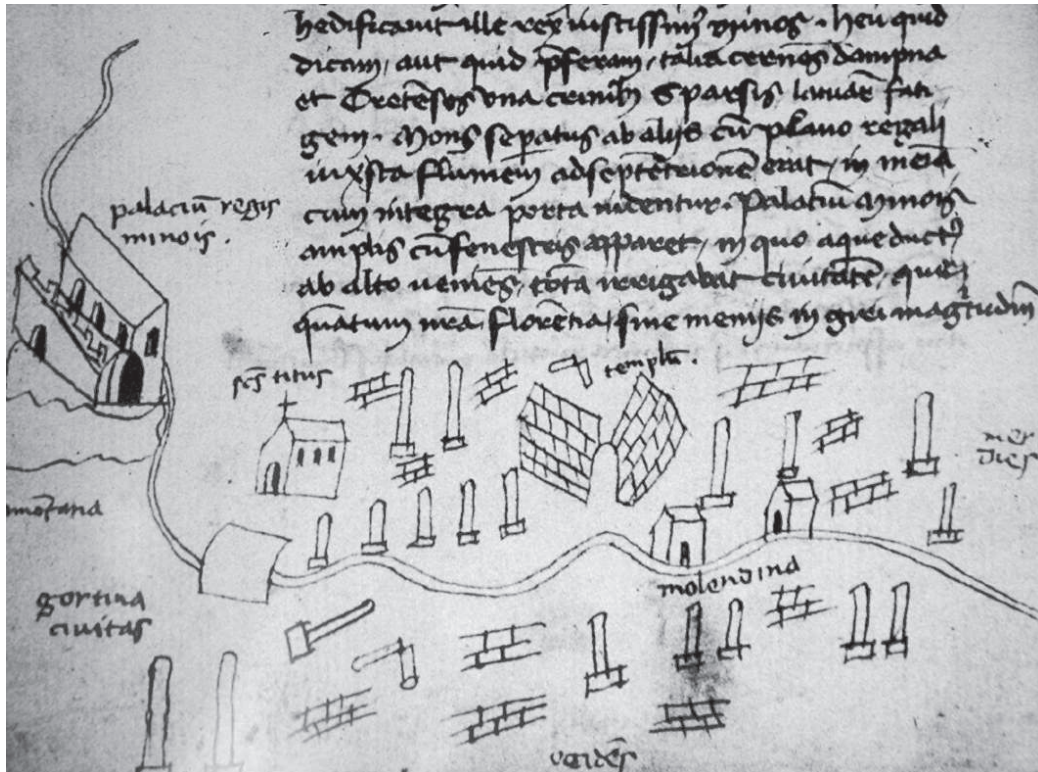 hedificauit ille rex iustissimꝰ minos. heu quid
dicam, aut quid p̄feram, talia cernēs dampna
et Cretēses una crinibꝫ Sparsis latuār̄ fati
gem. Mons sep̄atus ab aliis cū plano regali
iuxsta flumen ad septētrionē erat, in
cum integra porta uidentur. Palatiū minois
amplis cū fenestris apparet, in quo aqueductꝰ
ab alto ueniēs, totā irrigabat ciuitatē, que
quātum nr̄a florētia, sine menijs in girū magītudinē
palaciū regis
minois.
sc̄s titus
templū.
mer
dies
gortina
ciuitas
molendina